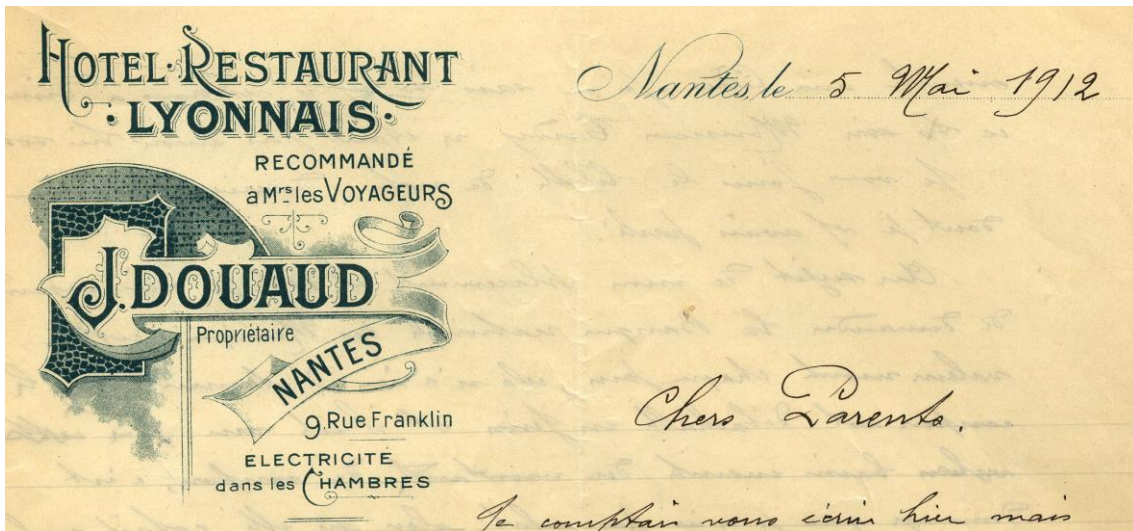 HOTEL·RESTAURANT
·LYONNAIS·
RECOMMANDÉ
à Mrs les VOYAGEURS
J. DOUAUD
Propriétaire
NANTES
9. Rue Franklin
ELECTRICITÉ
dans les CHAMBRES
Nantes, le 5 Mai 1912
Chers Parents.
Je comptais vous écrire hier mais